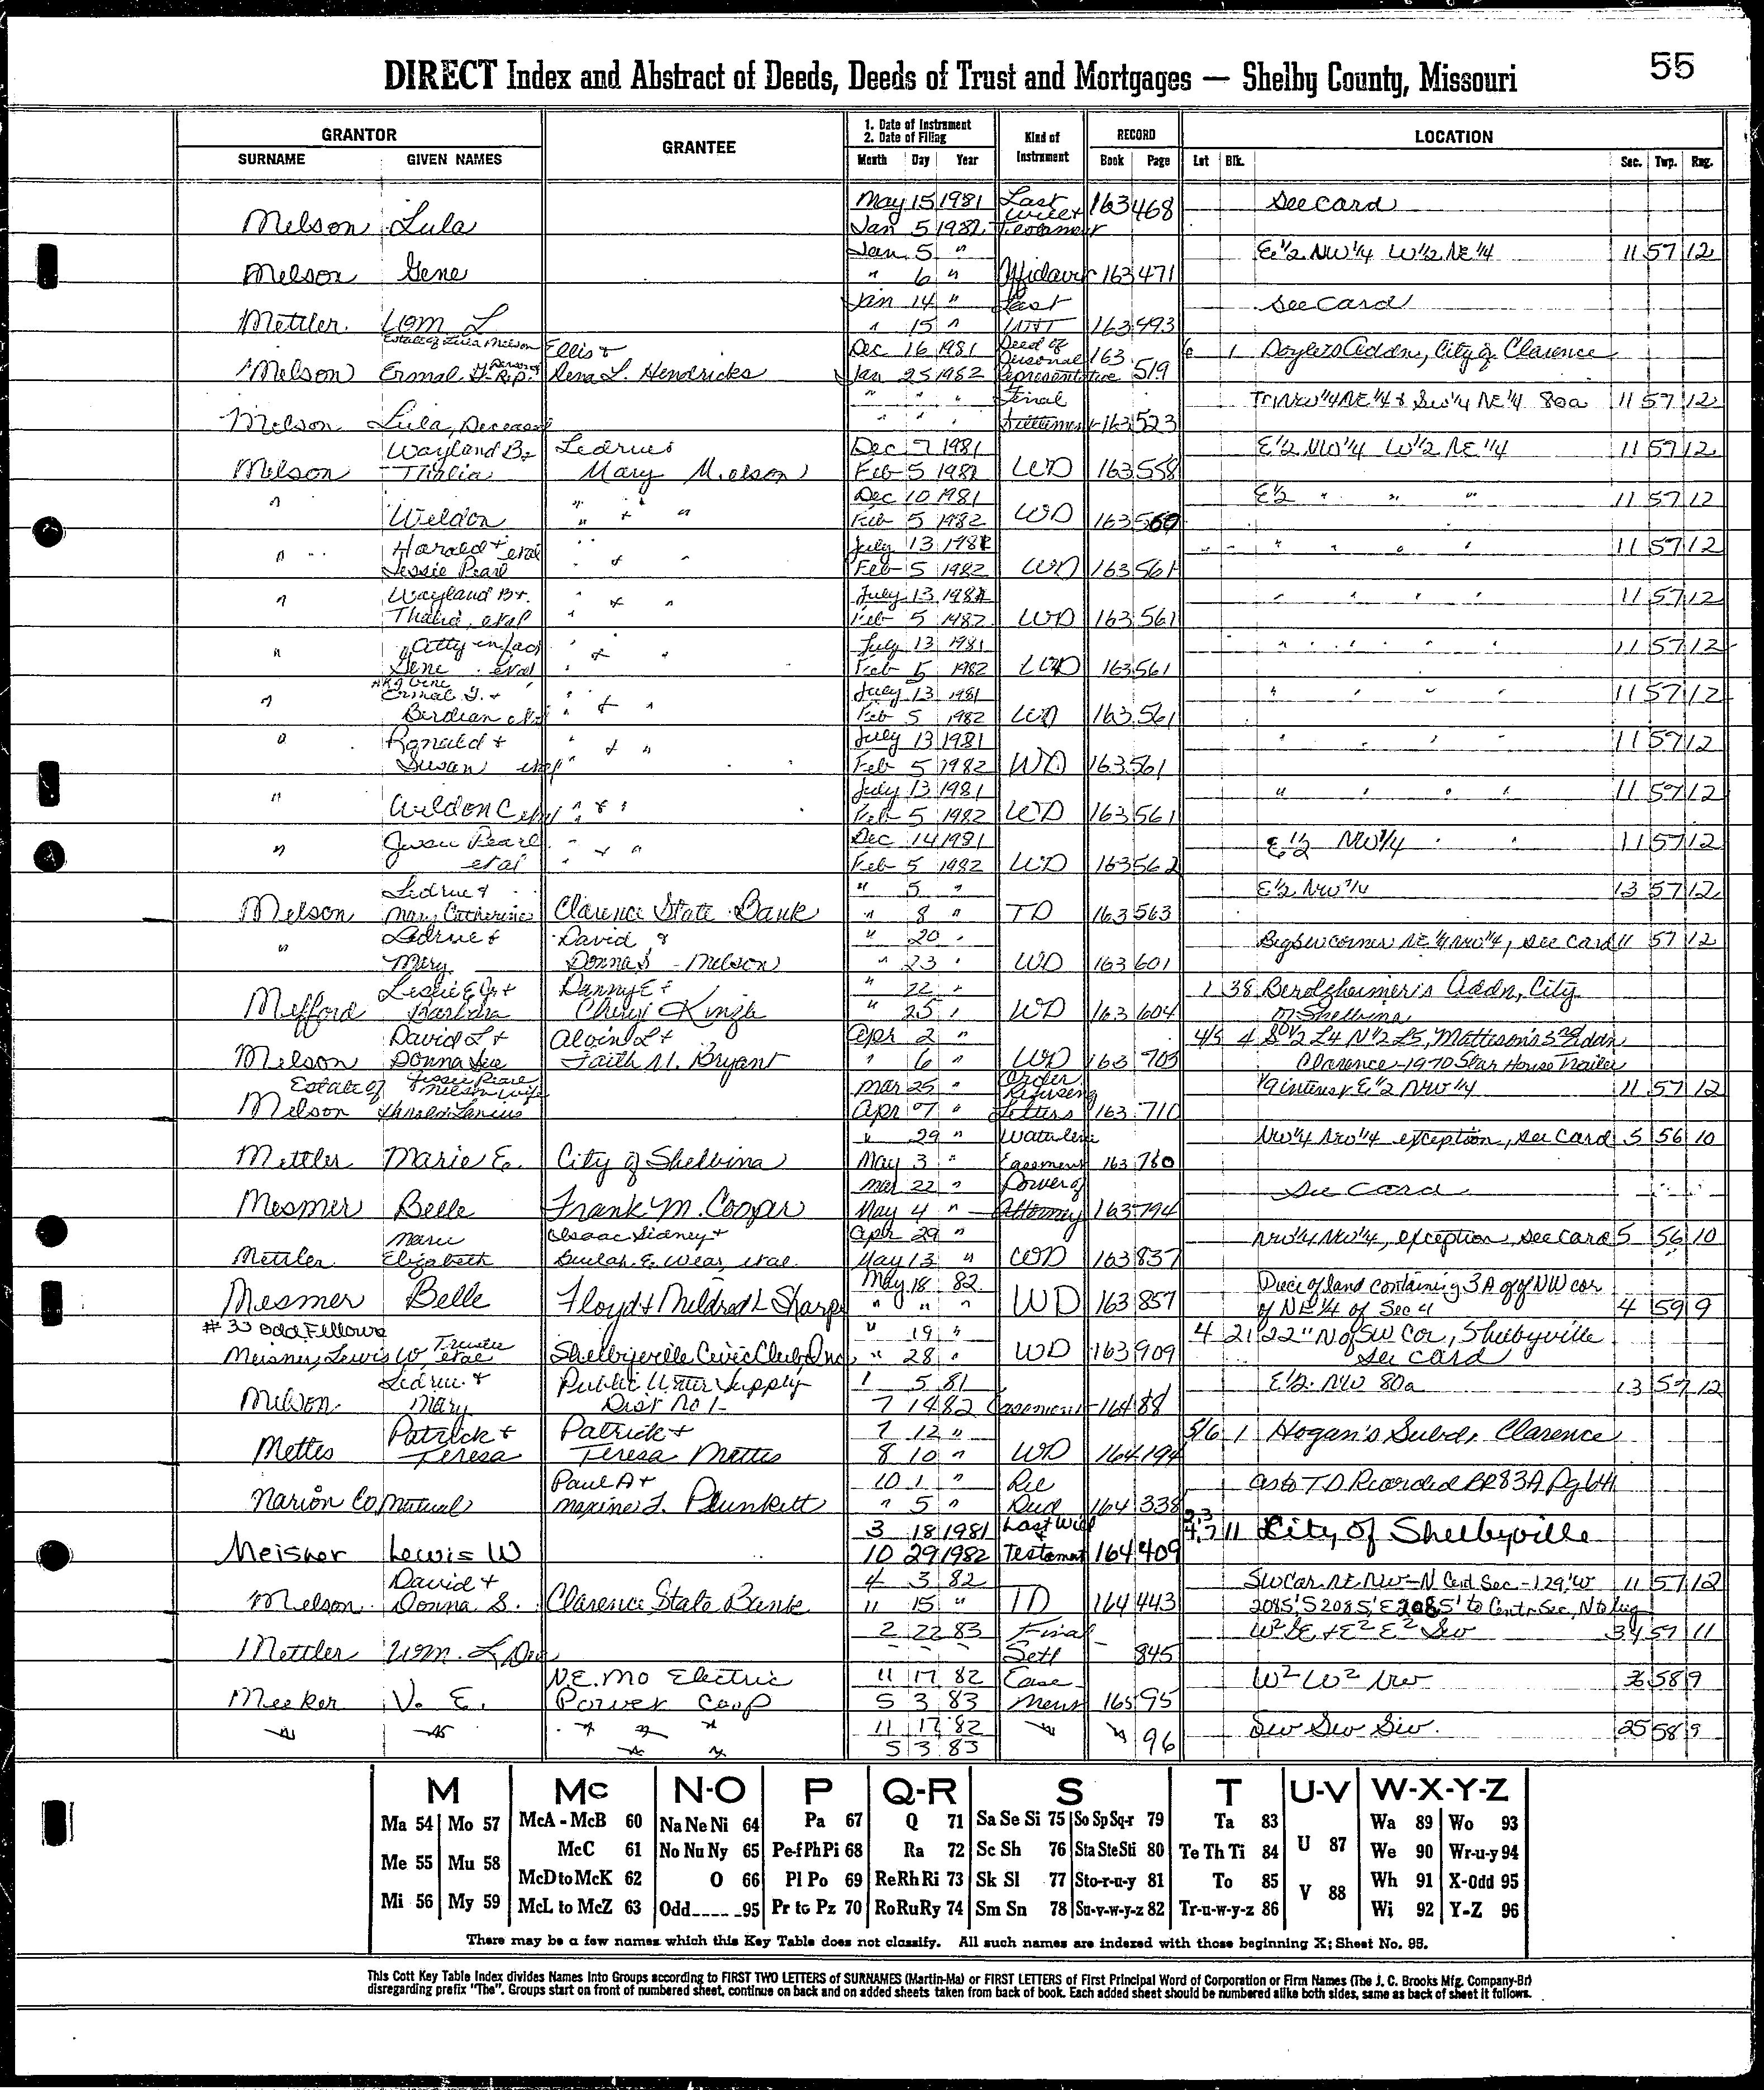 55
DIRECT Index and Abstract of Deeds, Deeds of Trust and Mortgages — Shelby County, Missouri
GRANTOR GRANTEE 1. Date of Instrument 2. Date of Filing Kind of Instrument RECORD LOCATION
SURNAME GIVEN NAMES Month Day Year Book Page Lot Blk. Sec. Twp. Rng.
May 15 1981 Last 163 468 See card
Melson Lula Jan 5 1982 Testament
Jan 5 " E½ NW¼ W½ NE¼ 11 57 12
Melson Gene " 6 " Affidavit 163 471
Jan 14 " Last See card
Mettler Wm L " 15 " 163 493
Estate of Lula Melson Ellis + Dec 16 1981 Deed of Personal 163 6 1 Addn, City of Clarence
Melson Ermal G. Rena L. Hendricks Jan 25 1982 Representative 519
" " " Final Tr NW¼ NE¼ & SW¼ NE¼ 80a 11 57 12
Melson Lula, Deceased " " " Settlement 163 523
Wayland B. Ledrue Dec 7 1981 E½ NW¼ W½ NE¼ 11 57 12
Melson Thalia Mary Melson Feb 5 1982 WD 163 558
" Dec 10 1981 E½ " " " 11 57 12
Weldon " + " Feb 5 1982 WD 163 560
" Harold + etal July 13 1981 " " " " " 11 57 12
Jessie Pearl " + " Feb 5 1982 WD 163 561
" Wayland B + " + " July 13 1981 " " " " 11 57 12
Thalia, etal Feb 5 1982 WD 163 561
" Atty in fact July 13 1981 " " " " " 11 57 12
Gene etal " + " Feb 5 1982 WD 163 561
" Ermal G. + July 13 1981 " " " " 11 57 12
Berdean etal " + " Feb 5 1982 WD 163 561
" Ronald + " + " July 13 1981 " " " " 11 57 12
Susan etal Feb 5 1982 WD 163 561
" July 13 1981 " " " " 11 57 12
Weldon C etal " + " Feb 5 1982 WD 163 561
" Pearl " + " Dec 14 1981 E½ NW¼ " " 11 57 12
etal Feb 5 1982 WD 163 562
Ledrue + " 5 " E½ NW¼ 13 57 12
Melson Mary Catherine Clarence State Bank " 8 " TD 163 563
" Ledrue + David & " 20 " Beg SW corner NE¼ NW¼, see card 11 57 12
Mary Donna S Melson " 23 " WD 163 601
Leslie E Jr + Danny E + " 22 " 1 38 Berolzheimer's Addn, City
Mefford Barbara Cheryl " 25 " WD 163 604 of Shelbina
David L + Alvin L + Apr 2 " 4/5 4 S½ L4 N½ L5, Mattison's 3rd Addn
Melson Donna Sue Faith M. Bryant " 6 " WD 163 703 Clarence - 1970 Star House Trailer
Estate of Jessie Pearl Melson wife Mar 25 " Order Refusing 1/9 interest E½ NW¼ 11 57 12
Melson Harold Apr 7 " Letters 163 710
" 29 " Waterline NW¼ NW¼ exception, see card 5 56 10
Mettler Marie E. City of Shelbina May 3 " Easement 163 780
Mar 22 " Power of See card
Mesmer Belle Frank M. Cooper May 4 " Attorney 163 794
Marie Isaac Sidney + Apr 29 " NW¼ NW¼, exception, see card 5 56 10
Mettler Elizabeth Beulah E. Wear, etal May 13 " WD 163 837
May 18 82 Piece of land containing 3A off NW cor
Mesmer Belle Floyd + Mildred L Sharp " " " WD 163 857 of NE¼ of Sec 4 4 59 9
#33 Odd Fellows " 19 " 4 21 22" N of SW Cor, Shelbyville
Meisner, Lewis W, Trustee etal Shelbyville Civic Club, Inc " 28 " WD 163 909 See card
Ledrue + Public Water Supply 1 5 81 E½ NW 80a 13 57 12
Melson Mary Dist No 1 7 14 82 Easement 164 88
Patrick + Patrick + 7 12 " 5/6 1 Hogan's Subd, Clarence
Mettes Teresa Teresa Mettes 8 10 " WD 164 194
Paul A + 10 1 " Rel as to TD Recorded BR 83A Pg 641
Marion Co Mutual Maxine L. Plunkett " 5 " Deed 164 338
3 18 1981 Last Will 2,3 4,7 11 City of Shelbyville
Meisner Lewis W 10 29 1982 Testament 164 409
David + 4 3 82 SW Cor. NE NW - N Cent Sec - 129' W 11 57 12
Melson Donna S. Clarence State Bank 11 15 " TD 164 443 2085' S 2085' E 2085' to Centr Sec, N to beg
2 22 83 Final W² SE + E² E² SW 34 57 11
Mettler Wm. L Dec Setl 845
N.E. Mo Electric 11 17 82 Ease W² W² NW 36 58 9
Meeker V. E. Power Coop 5 3 83 ment 165 95
" " " " " 11 17 82 " " SW SW SW. 25 58 9
" " 5 3 83 96
M Mc N-O P Q-R S T U-V W-X-Y-Z
Ma 54 Mo 57 McA - McB 60 Na Ne Ni 64 Pa 67 Q 71 Sa Se Si 75 So Sp Sq-r 79 Ta 83 Wa 89 Wo 93
Me 55 Mu 58 McC 61 No Nu Ny 65 Pe-f Ph Pi 68 Ra 72 Sc Sh 76 Sta Ste Sti 80 Te Th Ti 84 U 87 We 90 Wr-u-y 94
McD to McK 62 O 66 Pl Po 69 Re Rh Ri 73 Sk Sl 77 Sto-r-u-y 81 To 85 Wh 91 X-Odd 95
Mi 56 My 59 McL to McZ 63 Odd_____95 Pr to Pz 70 Ro Ru Ry 74 Sm Sn 78 Su-v-w-y-z 82 Tr-u-w-y-z 86 V 88 Wi 92 Y-Z 96
There may be a few names which this Key Table does not classify. All such names are indexed with those beginning X; Sheet No. 95.
This Cott Key Table Index divides Names into Groups according to FIRST TWO LETTERS of SURNAMES (Martin-Ma) or FIRST LETTERS of First Principal Word of Corporation or Firm Names (The J. C. Brooks Mfg. Company-Br)
disregarding prefix "The". Groups start on front of numbered sheet, continue on back and on added sheets taken from back of book. Each added sheet should be numbered alike both sides, same as back of sheet it follows.